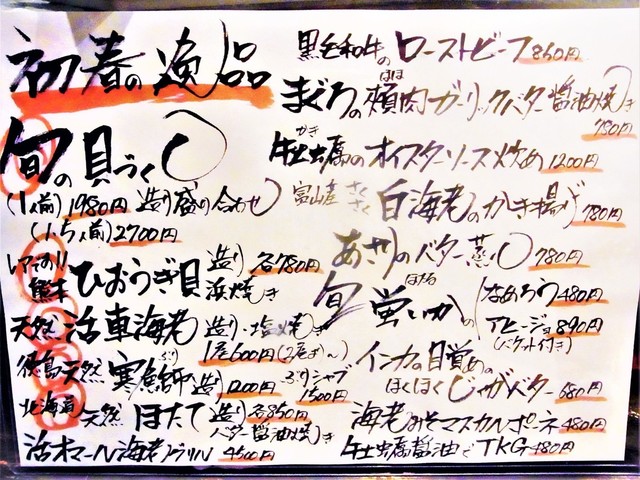 初春の逸品
旬の貝づくし
(1人前)1980円 造り盛り合わせ
(1.5人前)2700円
レアです!!
熊本 ひおうぎ貝 造り 浜焼き 各780円
天然 活車海老 造り・塩焼き
1尾600円(2尾より〜)
徳島 天然 寒鰤 造り 1200円 ぶりシャブ 1500円
北海道 天然 ほたて 造り 各850円
バター醤油焼き
活オマール海老グリル 4500円
黒毛和牛のローストビーフ 850円
まぐろの頬肉ガーリックバター醤油焼き
ほほ
780円
かき
牡蠣のオイスターソース炒め 1200円
富山産 さくさく 白海老のかき揚げ 780円
あさりのバター蒸し 780円
旬 蛍いかの なめろう 480円
ほたる
アヒージョ 890円
(バケット付き)
インカの目覚めの
ほくほくじゃがバター 680円
海老みそマスカルポーネ 480円
牡蠣醤油でTKG 480円